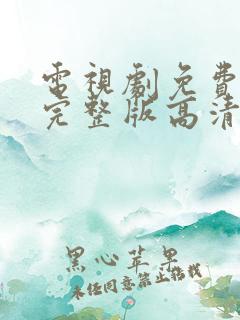 電視劇免費
完整版高清
黑心苹果
未经同意禁止搭载